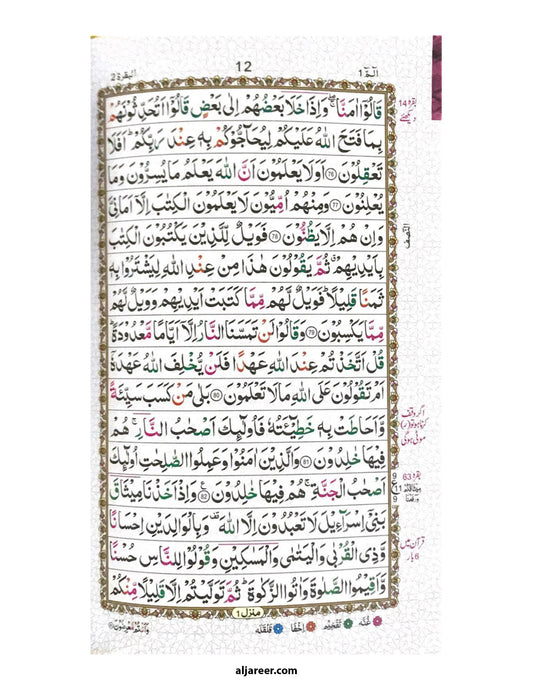 الٓمّٓ ١
12
البقرة ٢
قَالُوْۤا اٰمَنَّا ۖۚ وَاِذَا خَلَا بَعْضُهُمْ اِلٰى بَعْضٍ قَالُوْۤا اَتُحَدِّثُوْنَهُمْ
بِمَا فَتَحَ اللّٰهُ عَلَيْكُمْ لِيُحَآجُّوْكُمْ بِهٖ عِنْدَ رَبِّكُمْ ؕ اَفَلَا
تَعْقِلُوْنَ ﴿76﴾ اَوَلَا يَعْلَمُوْنَ اَنَّ اللّٰهَ يَعْلَمُ مَا يُسِرُّوْنَ وَمَا
يُعْلِنُوْنَ ﴿77﴾ وَمِنْهُمْ اُمِّيُّوْنَ لَا يَعْلَمُوْنَ الْكِتٰبَ اِلَّاۤ اَمَانِيَّ
وَاِنْ هُمْ اِلَّا يَظُنُّوْنَ ﴿78﴾ فَوَيْلٌ لِّلَّذِيْنَ يَكْتُبُوْنَ الْكِتٰبَ
بِاَيْدِيْهِمْ ۗ ثُمَّ يَقُوْلُوْنَ هٰذَا مِنْ عِنْدِ اللّٰهِ لِيَشْتَرُوْا بِهٖ
ثَمَنًا قَلِيْلًا ؕ فَوَيْلٌ لَّهُمْ مِّمَّا كَتَبَتْ اَيْدِيْهِمْ وَوَيْلٌ لَّهُمْ
مِّمَّا يَكْسِبُوْنَ ﴿79﴾ وَقَالُوْا لَنْ تَمَسَّنَا النَّارُ اِلَّاۤ اَيَّامًا مَّعْدُوْدَةً ؕ
قُلْ اَتَّخَذْتُمْ عِنْدَ اللّٰهِ عَهْدًا فَلَنْ يُّخْلِفَ اللّٰهُ عَهْدَهٗۤ
اَمْ تَقُوْلُوْنَ عَلَى اللّٰهِ مَا لَا تَعْلَمُوْنَ ﴿80﴾ بَلٰى مَنْ كَسَبَ سَيِّئَةً
وَّاَحَاطَتْ بِهٖ خَطِيْٓـَٔتُهٗ فَاُولٰٓئِكَ اَصْحٰبُ النَّارِ ۚ هُمْ
فِيْهَا خٰلِدُوْنَ ﴿81﴾ وَالَّذِيْنَ اٰمَنُوْا وَعَمِلُوا الصّٰلِحٰتِ اُولٰٓئِكَ
اَصْحٰبُ الْجَنَّةِ ۚ هُمْ فِيْهَا خٰلِدُوْنَ ﴿82﴾ وَاِذْ اَخَذْنَا مِيْثَاقَ
بَنِيْۤ اِسْرَآءِيْلَ لَا تَعْبُدُوْنَ اِلَّا اللّٰهَ ۟ وَبِالْوَالِدَيْنِ اِحْسَانًا
وَّذِي الْقُرْبٰى وَالْيَتٰمٰى وَالْمَسٰكِيْنِ وَقُوْلُوْا لِلنَّاسِ حُسْنًا
وَّاَقِيْمُوا الصَّلٰوةَ وَاٰتُوا الزَّكٰوةَ ؕ ثُمَّ تَوَلَّيْتُمْ اِلَّا قَلِيْلًا مِّنْكُمْ
منزل ١
بقره 14
دیکھئے
النصف
اگر وقف
بقره 83
قرآن میں
6 بار
غُنَّه تفخیم اِخفا قلقله
وَاَنْتُمْ مُّعْرِضُوْنَ
aljareer.com